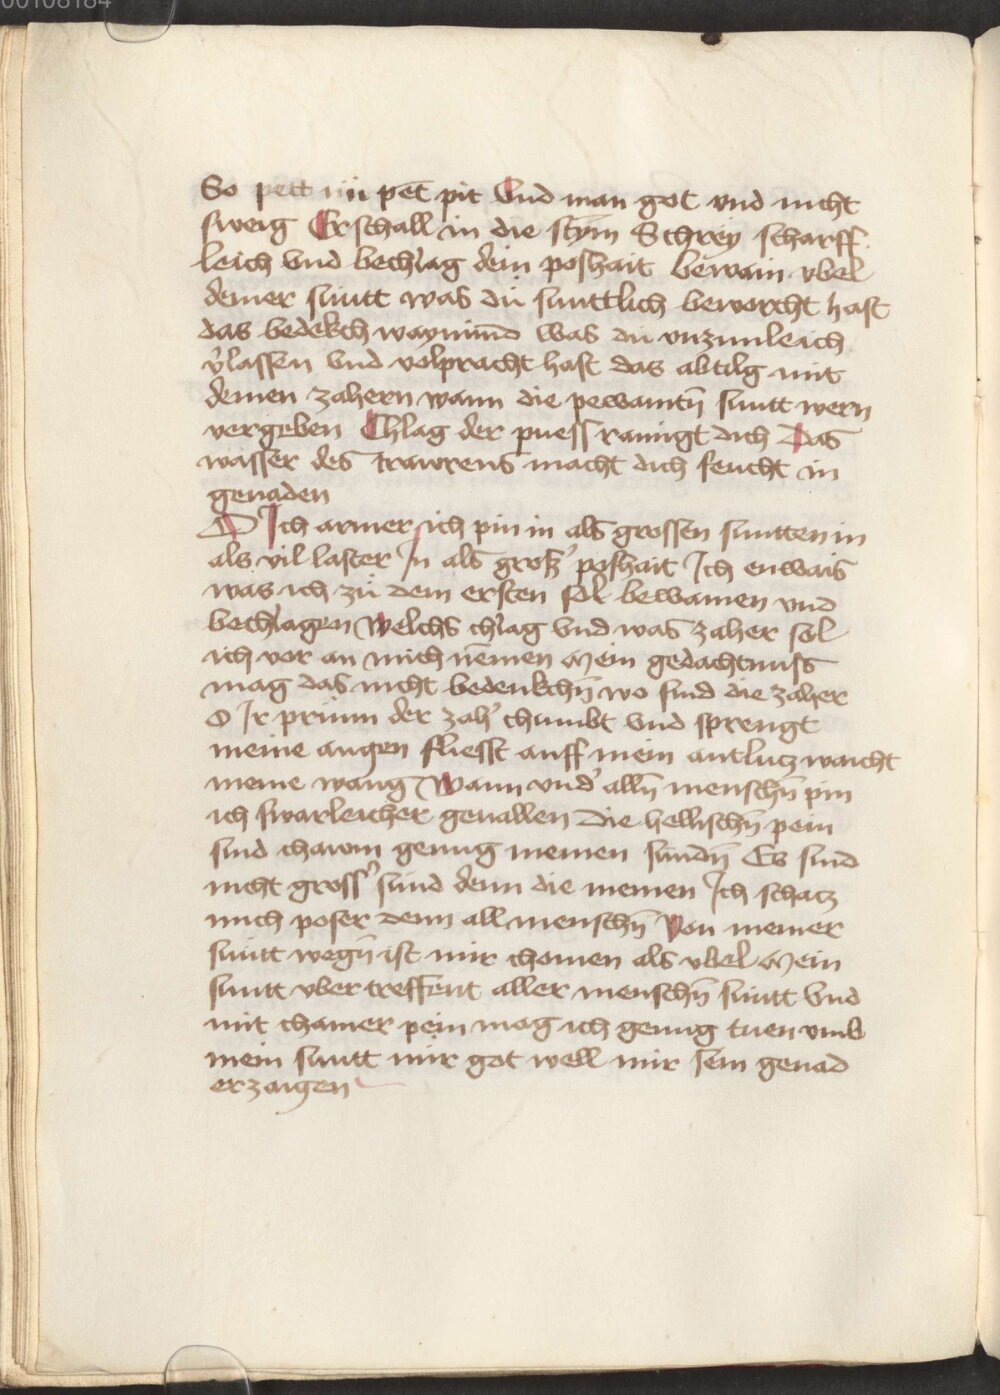 00108184
So pett pēt pit vnd man got vnd nicht
sweig Erschall in die stym Schrey scharff
leich vnd bechlag dein poshait bewain vbel
deiner suntt was du suntlich beworcht hast
das bedekch waynund was du vnzimleich
v̾lassen vnd volpracht hast das abtilg mit
deinen zahern wann die pewaintn̄ suntt wern
vergeben Chlag der puess rainigt dich Das
wasser des trawrens macht dich feucht in
genaden
O Ich armer ich pin in als grossen suntten in
als vil laster In als groß̾ poshait Ich enwais
was ich zu dem ersten sol bewainen vnd
bechlagen Welchs chlag vnd was zaher sol
ich vor an mich nēmen Mein gedachtnuss
mag das nicht bedenkchn̄ wo sind die zaher
O Ir prunn der zah̾ chumbt vnd sprengt
meine augen fliesst auff mein antlutz waicht
meine wang Wann vnd̾ alln̄ menschn̄ pin
ich swarleicher geuallen Die hellischn̄ pein
sind chawm genug meinen sundn̄ Es sind
nicht gross̾ sund denn die meinen Ich schatz
mich poser denn all menschn̄ Von meiner
suntt wegn̄ ist mir chomen als vbel Mein
suntt vber treffent aller menschn̄ suntt vnd
mit chainer pein mag ich genug tuen vmb
mein suntt nur got well mir sein genad
erzaigen